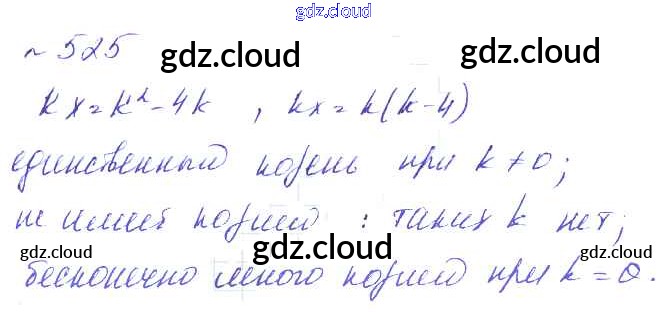 gdz.cloud
№ 525
gdz.cloud gdz.cloud
kx = k² - 4k , kx = k(k-4)
gdz.cloud gdz.cloud
единственный корень при k ≠ 0;
не имеет корней : таких k нет;
gdz.cloud gdz.cloud gdz.cloud
бесконечно много корней при k = 0.
gdz.cloud gdz.cloud